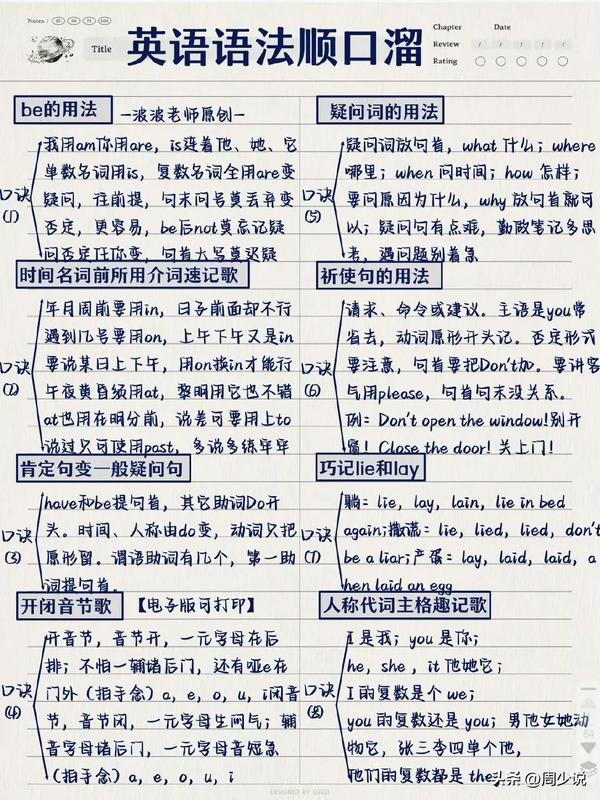 Notes / 25 50 75 100
Title
英语语法顺口溜
Chapter
Date
Review
Rating
be的用法 —波波老师原创—
口诀
(1)
我用am你用are，is连着他、她、它
单数名词用is，复数名词全用are变
疑问，往前提，句末问号莫丢弃变
否定，更容易，be后not莫忘记疑
问否定任你变，句首大写莫迟疑
时间名词前所用介词速记歌
口诀
(2)
年月周前要用in，日子前面却不行
遇到几号要用on，上午下午又是in
要说某日上下午，用on换in才能行
午夜黄昏须用at，黎明用它也不错
at也用在明分前，说差可要用上to
说过只可使用past，多说多练牢牢
肯定句变一般疑问句
口诀
(3)
have和be提句首，其它助词Do开
头。时间、人称由do变，动词只把
原形留。谓语助词有几个，第一助
词提句首。
开闭音节歌 【电子版可打印】
口诀
(4)
开音节，音节开，一元字母在后
排；不怕一辅堵后门，还有哑e在
门外（指手念）a, e, o, u, i闭音
节，音节闭，一元字母生闷气；辅
音字母堵后门，一元字母音短急
（指手念）a, e, o, u, i
疑问词的用法
口诀
(5)
疑问词放句首，what 什么；where
哪里；when 问时间；how 怎样；
要问原因为什么，why 放句首就可
以；疑问句有点难，勤做笔记多思
考，遇问题别着急
祈使句的用法
口诀
(6)
请求、命令或建议。主语是you常
省去，动词原形开头记。否定形式
要注意，句首要把Don't加。要讲客
气用please，句首句末没关系。
例：Don't open the window!别开
窗！Close the door! 关上门！
巧记lie和lay
口诀
(7)
躺：lie, lay, lain, lie in bed
again;撒谎：lie, lied, lied, don't
be a liar;产蛋：lay, laid, laid, a
hen laid an egg
人称代词主格趣记歌
口诀
(8)
I 是我；you 是你；
he, she , it 他她它；
I 的复数是个 we；
you 的复数还是 you；男他女她动
物它，张三李四单个他，
他们的复数都是 the
64
DESIGNED BY LIZZI
头条 @周少说